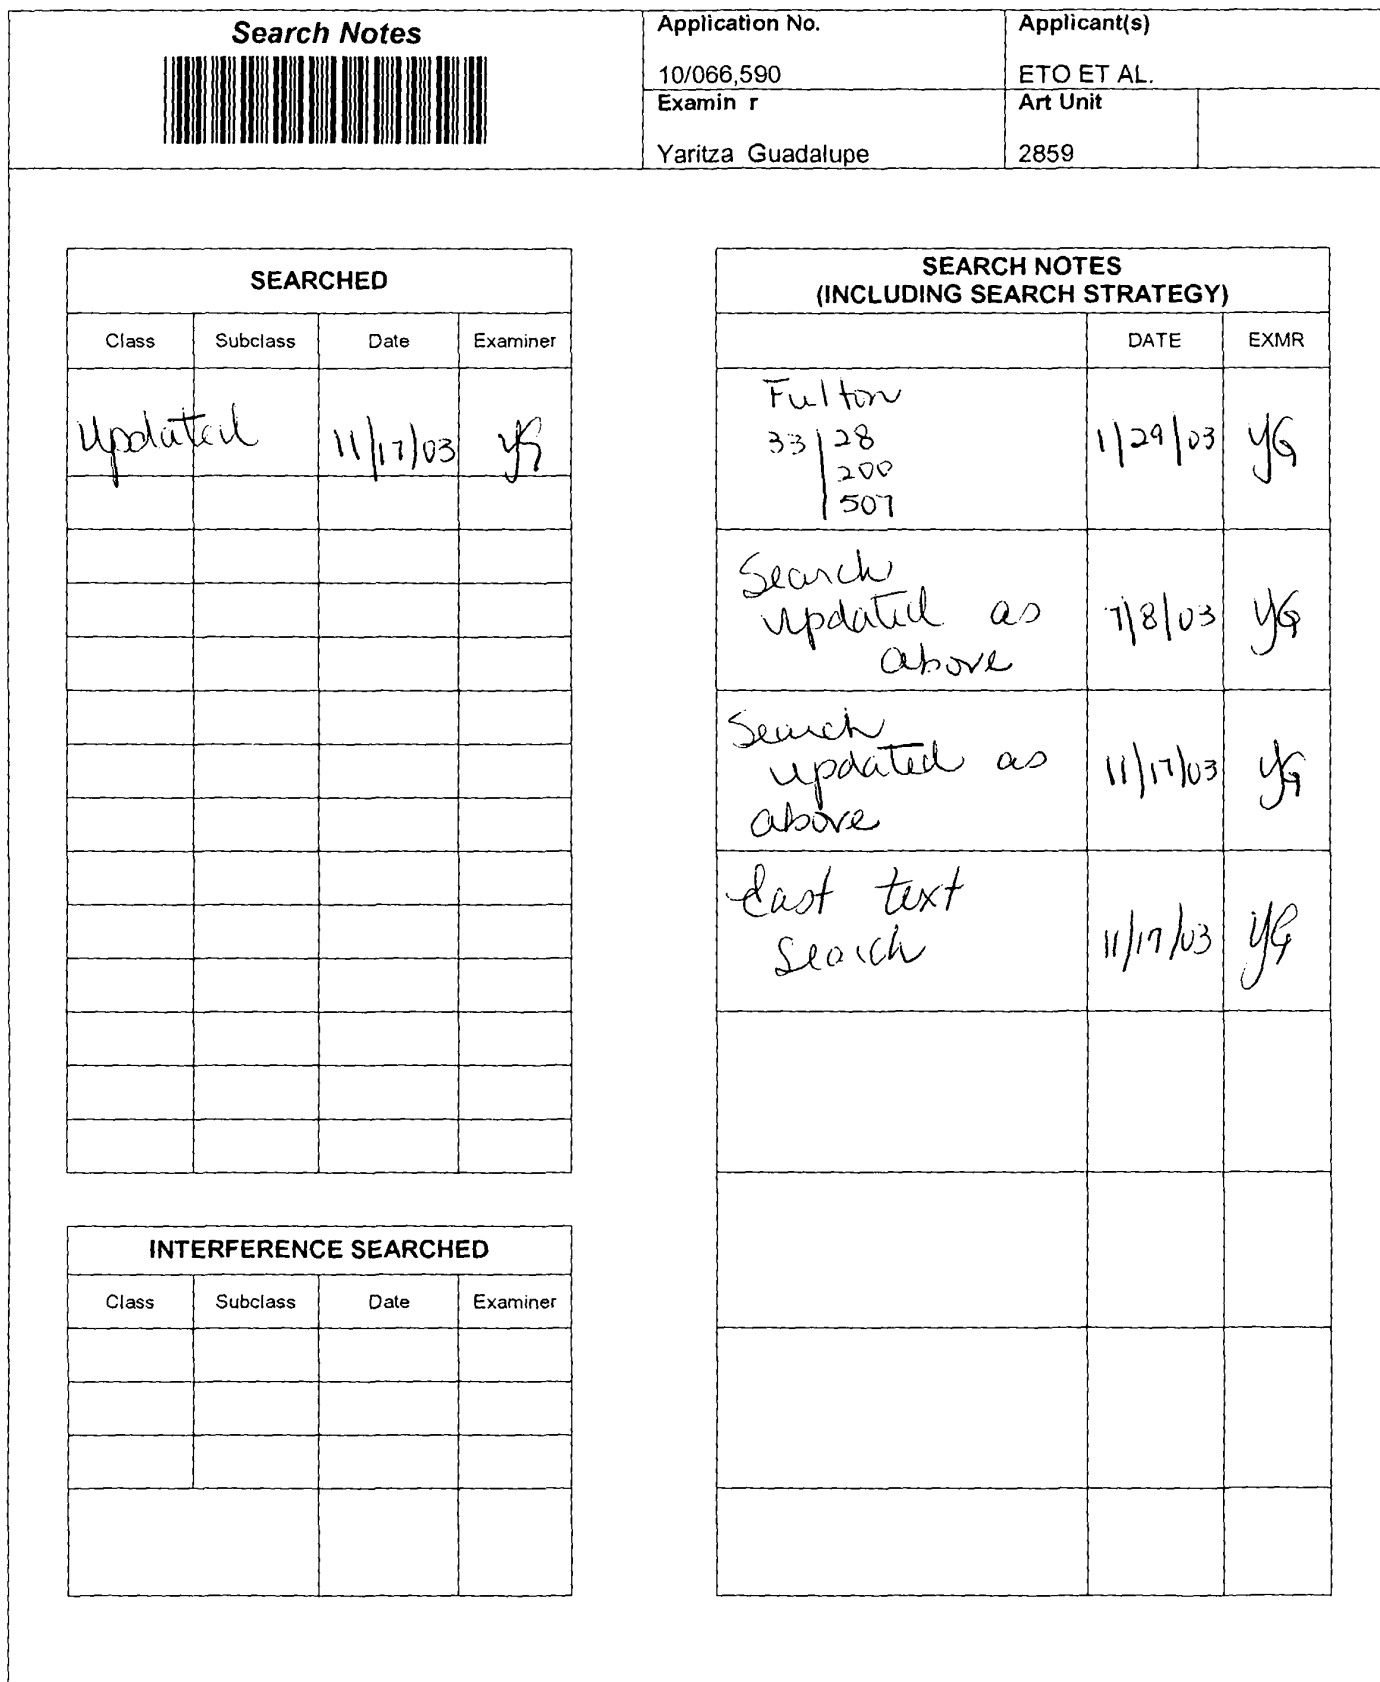 Search Notes
Application No.
Applicant(s)
10/066,590
ETO ET AL.
Examin r
Art Unit
Yaritza Guadalupe
2859
SEARCHED
Class Subclass Date Examiner
Updated 11/17/03 YG
INTERFERENCE SEARCHED
Class Subclass Date Examiner
SEARCH NOTES
(INCLUDING SEARCH STRATEGY)
DATE EXMR
Fulton
33 | 28 1/29/03 YG
200
507
Search
updated as 7/8/03 YG
above
Search
updated as 11/17/03 YG
above
East text
Search 11/17/03 YG